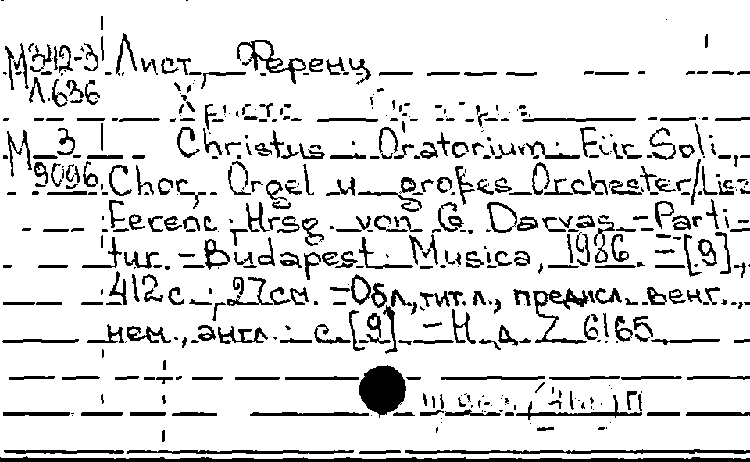 М342-3 Лист, Ференц
Л.636
М 3 Christus : Oratorium : Für Soli,
9096 Chor, Orgel u. großes Orchester/Lisz
Ferenc ; Hrsg. von G. Darvas. - Parti-
tur. - Budapest : Musica, 1986. - [9],
412 с. ; 27 см. - Обл., тит. л., предисл. венг.,
нем., англ. : с. [9]. - Н. д. Z 6165.